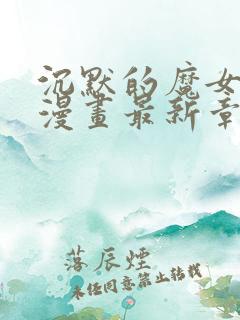 沉默的魔女
漫畫最新章
落辰煙
未经同意禁止转载